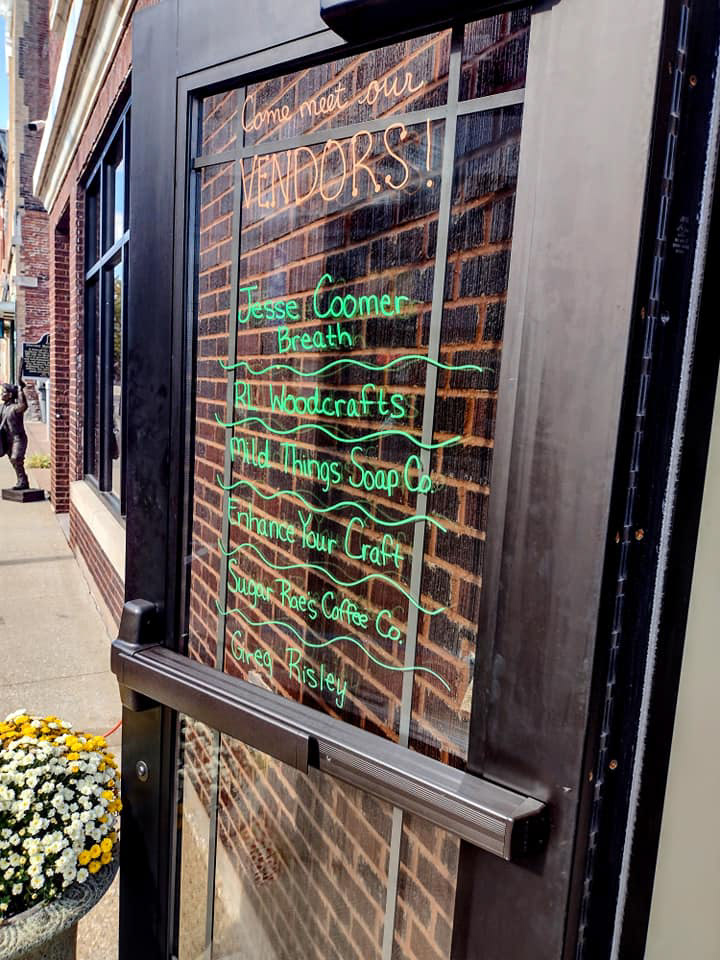 Come meet our
VENDORS!
Jesse Coomer
Breath
RL Woodcrafts
Mild Things Soap Co.
Enhance Your Craft
Sugar Rae's Coffee Co.
Greg Risley